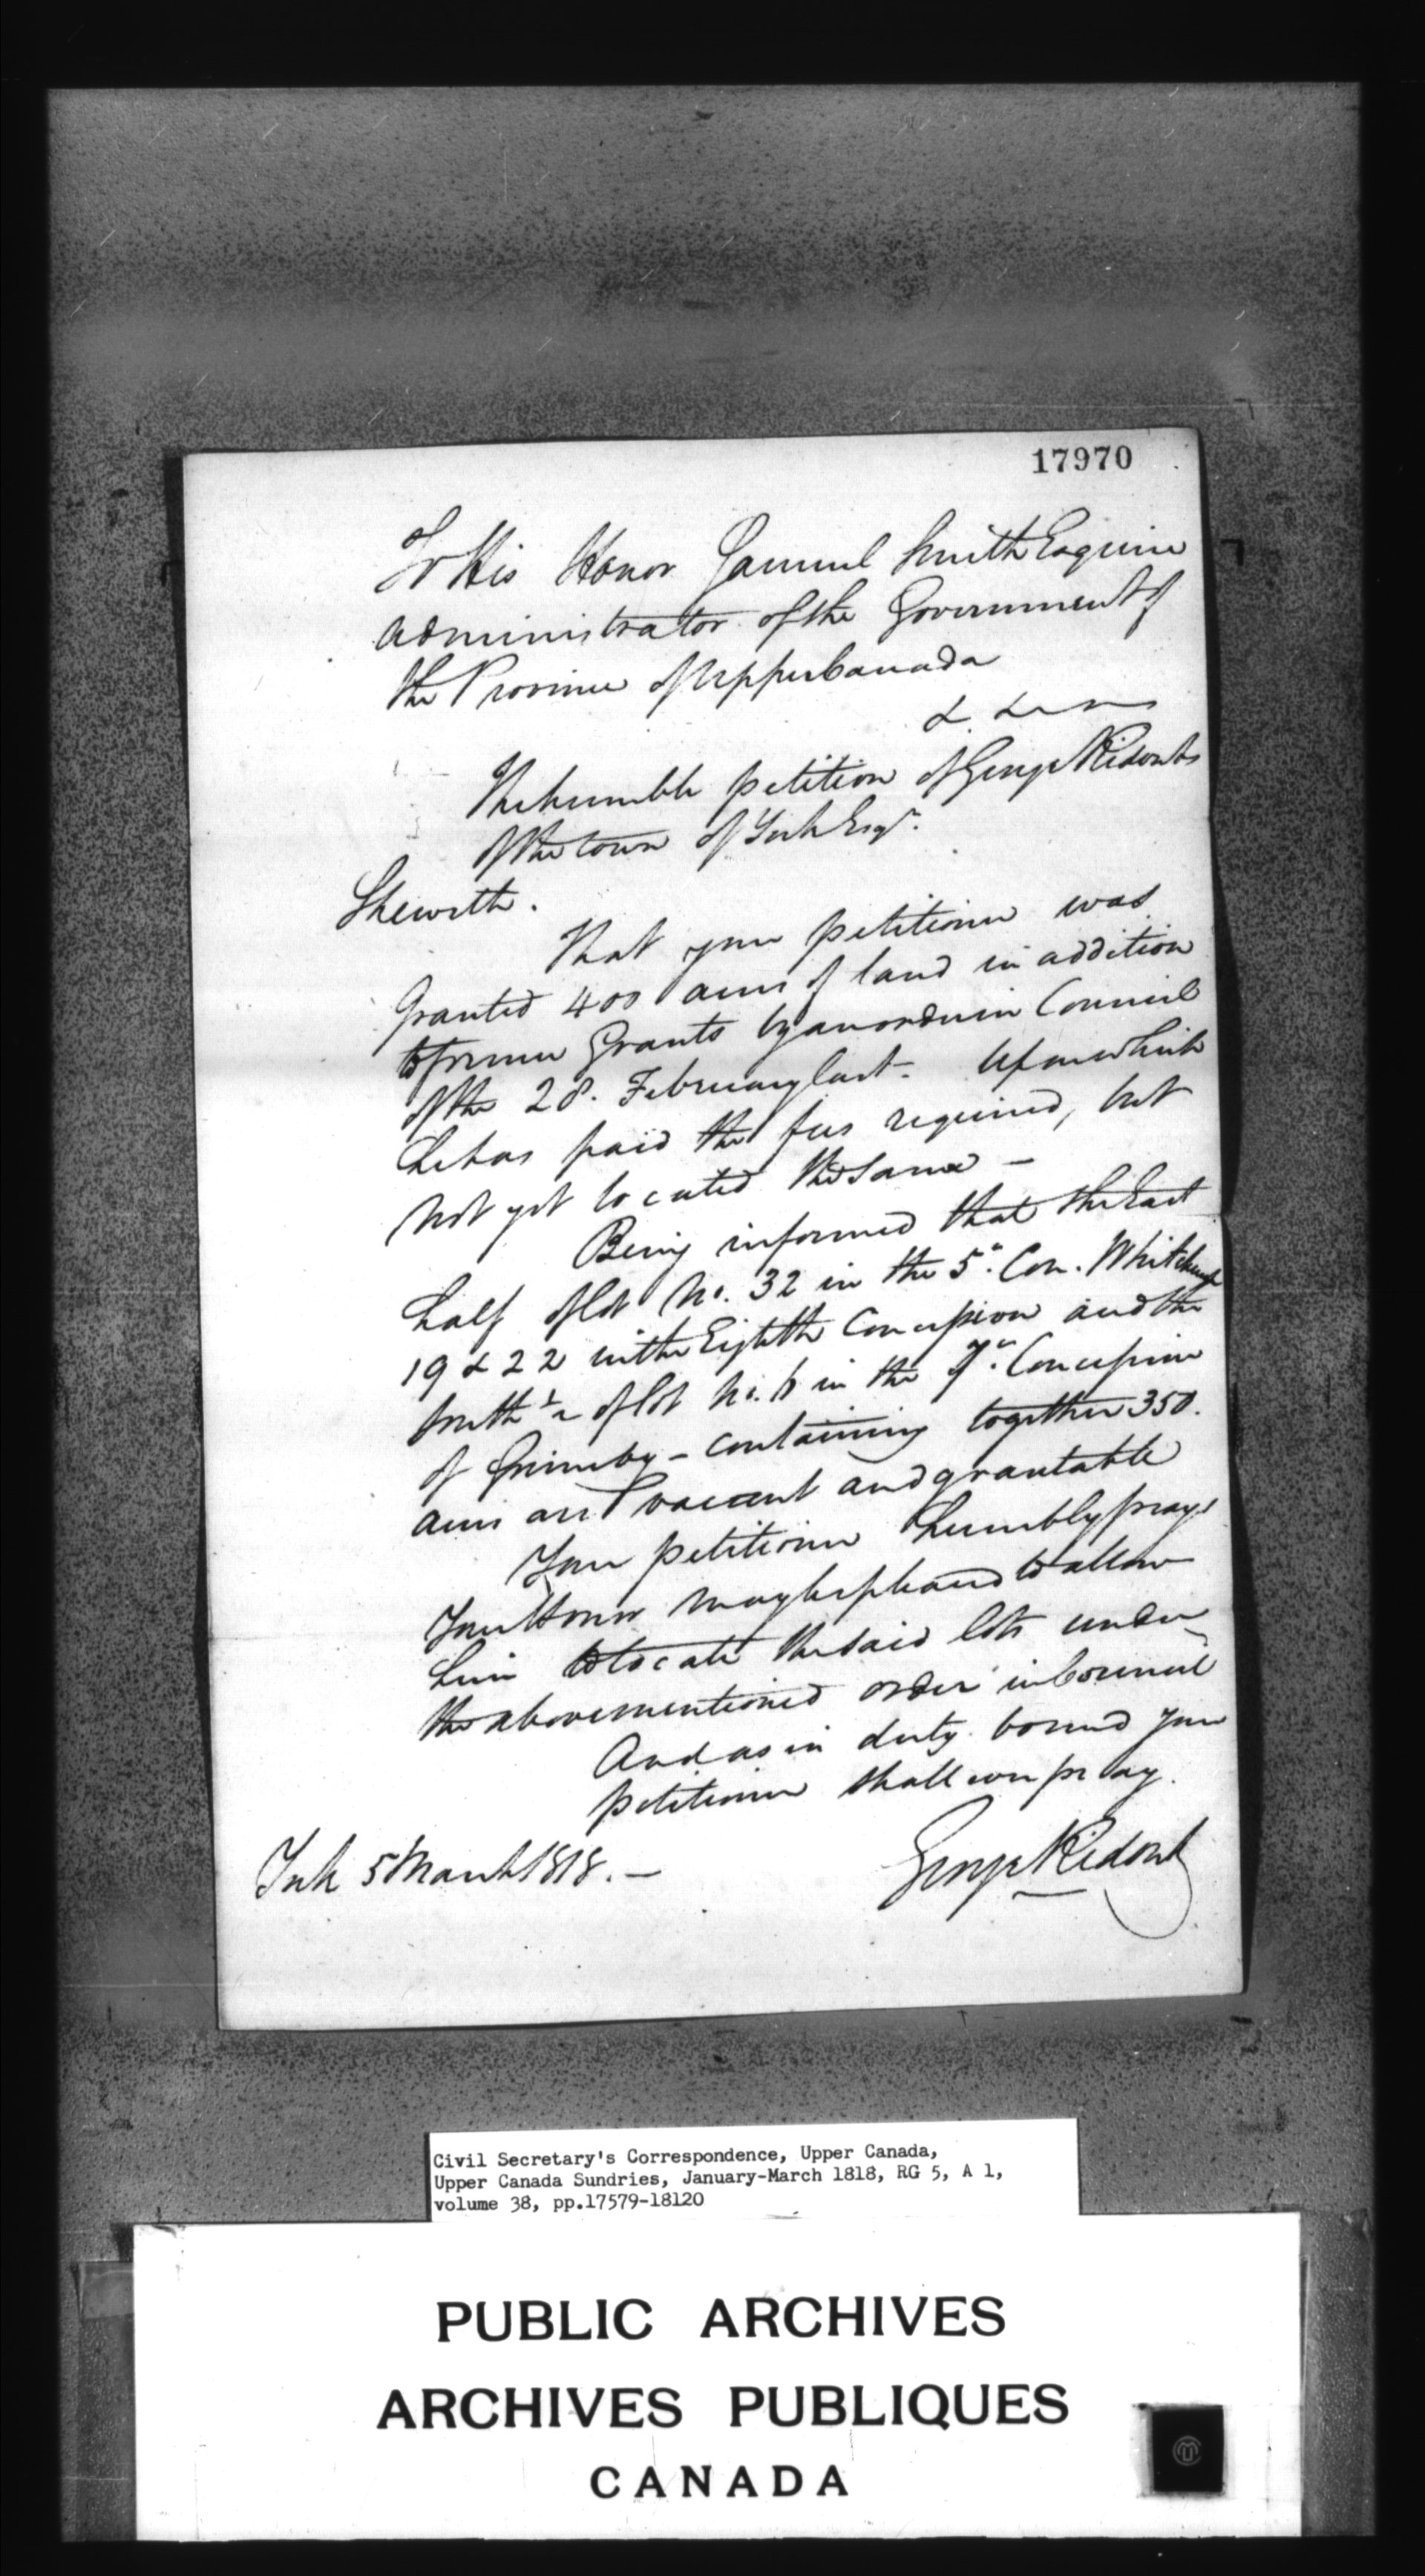 17970
To His Honor Samuel Smith Esquire
Administrator of the Government of
the Province of Upper Canada
&
The humble petition of George Ridout
Of the town of York Esqr.
Sheweth.
That your petitioner was
Granted 400 acres of land in addition
to former Grants by an order in Council
of the 28. February last - Upon which
he has paid the fees required, but
not yet located the same -
Being informed that the East
half of lot No. 32 in the 5th. Con. Whitchurch
19 & 22 in the Eighth Concession and the
South ½ of lot No. 6 in the 7th. Concession
of Grimsby - containing together 350.
acres are vacant and grantable
Your petitioner humbly prays
Your Honor may be pleased to allow
him to locate the said lots under
the abovementioned order in Council
And as in duty bound your
petitioner shall ever pray.
York 5 March 1818. - George Ridout
Civil Secretary's Correspondence, Upper Canada,
Upper Canada Sundries, January-March 1818, RG 5, A 1,
volume 38, pp.17579-18120
PUBLIC ARCHIVES
ARCHIVES PUBLIQUES
CANADA